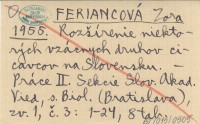 FERIANCOVÁ Zora
1955. Rozšírenie niekto-
rých vzácnych druhov ci-
cavcov na Slovensku. —
Práce II. Sekcie Slov. Akad.
Vied, s. Biol. (Bratislava),
zv. 1, č. 3: 1-24, 8 tab.